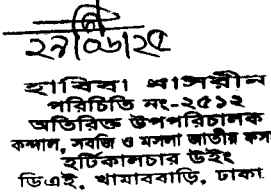 হাবিবা খাসরীন
পরিচিতি নং-২৫১২
অতিরিক্ত উপপরিচালক
কন্দাল, সবজি ও মসলা জাতীয় ফস
হর্টিকালচার উইং
ডিএই, খামারবাড়ি, ঢাকা